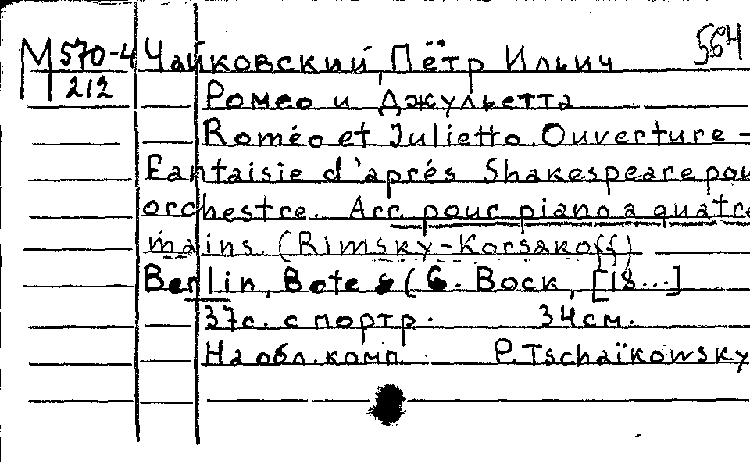 М 570-4 Чайковский, Пётр Ильич 564
212 Ромео и Джульетта
Roméo et Juliette Ouverture -
Fantaisie d'aprés Shakespeare pou
orchestre. Arr. pour piano a quatre
mains. (Rimsky-Korsakoff)
Berlin, Bote & G. Bock, [18...]
37с. с портр. 34см.
На обл. комп. P. Tschaïkowsky